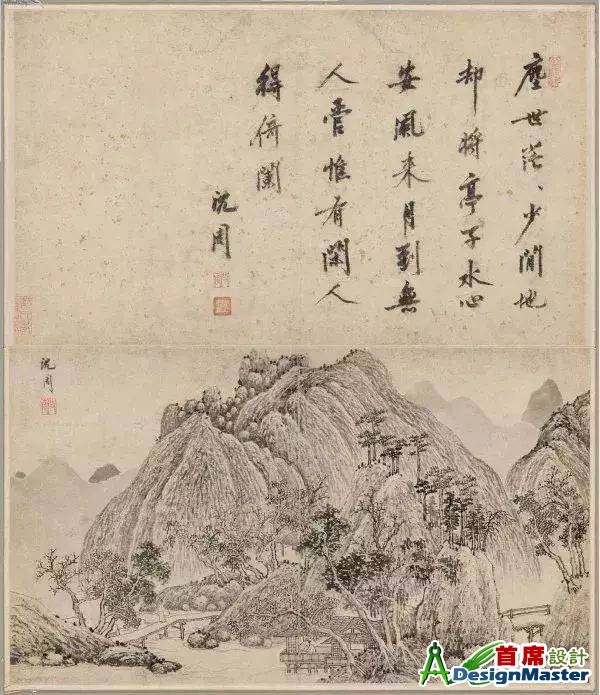 塵世茫、少閒地
却將亭子水心
安風來月到無
人管惟有閑人
得倚闌
沈周
沈周
首席設計
DesignMaster